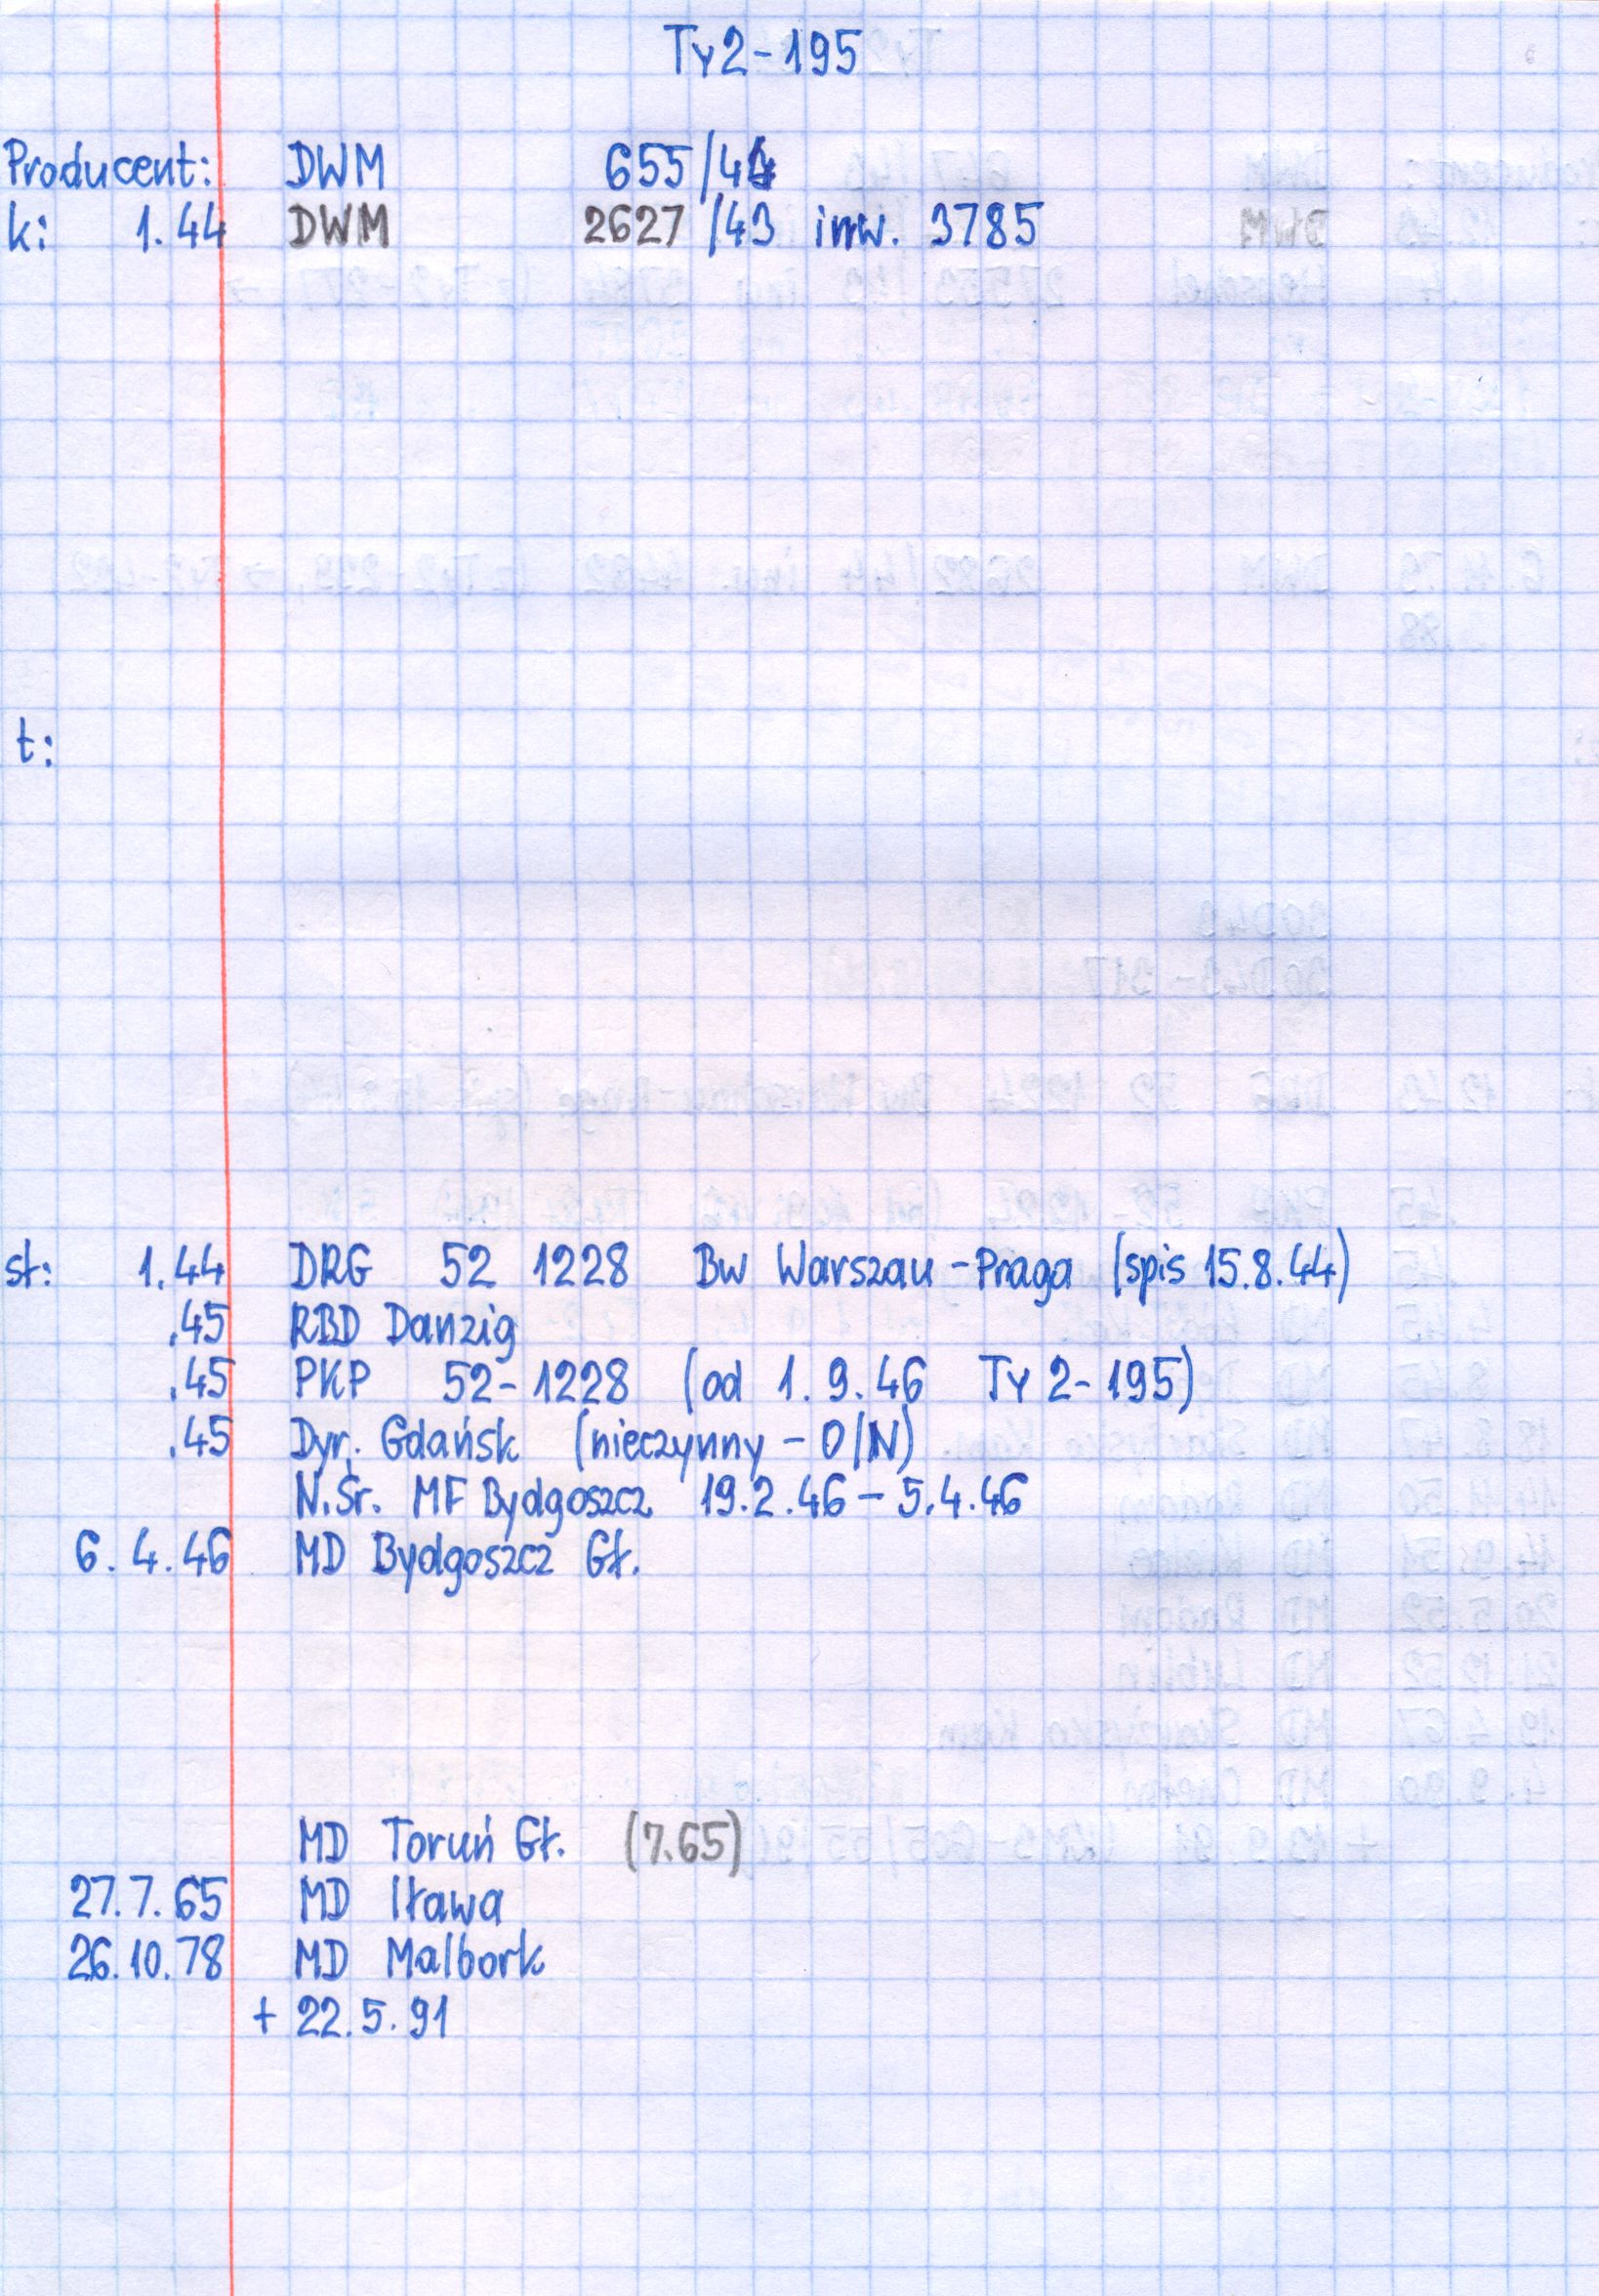 Ty2-195
Producent: DWM 655/44
k: 1.44 DWM 2627/43 inw. 3785
t:
st: 1.44 DRG 52 1228 Bw Warszau-Praga (spis 15.8.44)
.45 RBD Danzig
.45 PKP 52-1228 (od 1.9.46 Ty2-195)
.45 Dyr. Gdańsk (nieczynny - O/N)
N.Śr. MF Bydgoszcz 19.2.46 - 5.4.46
6.4.46 MD Bydgoszcz Gł.
MD Toruń Gł. (7.65)
27.7.65 MD Iława
26.10.78 MD Malbork
+ 22.5.91